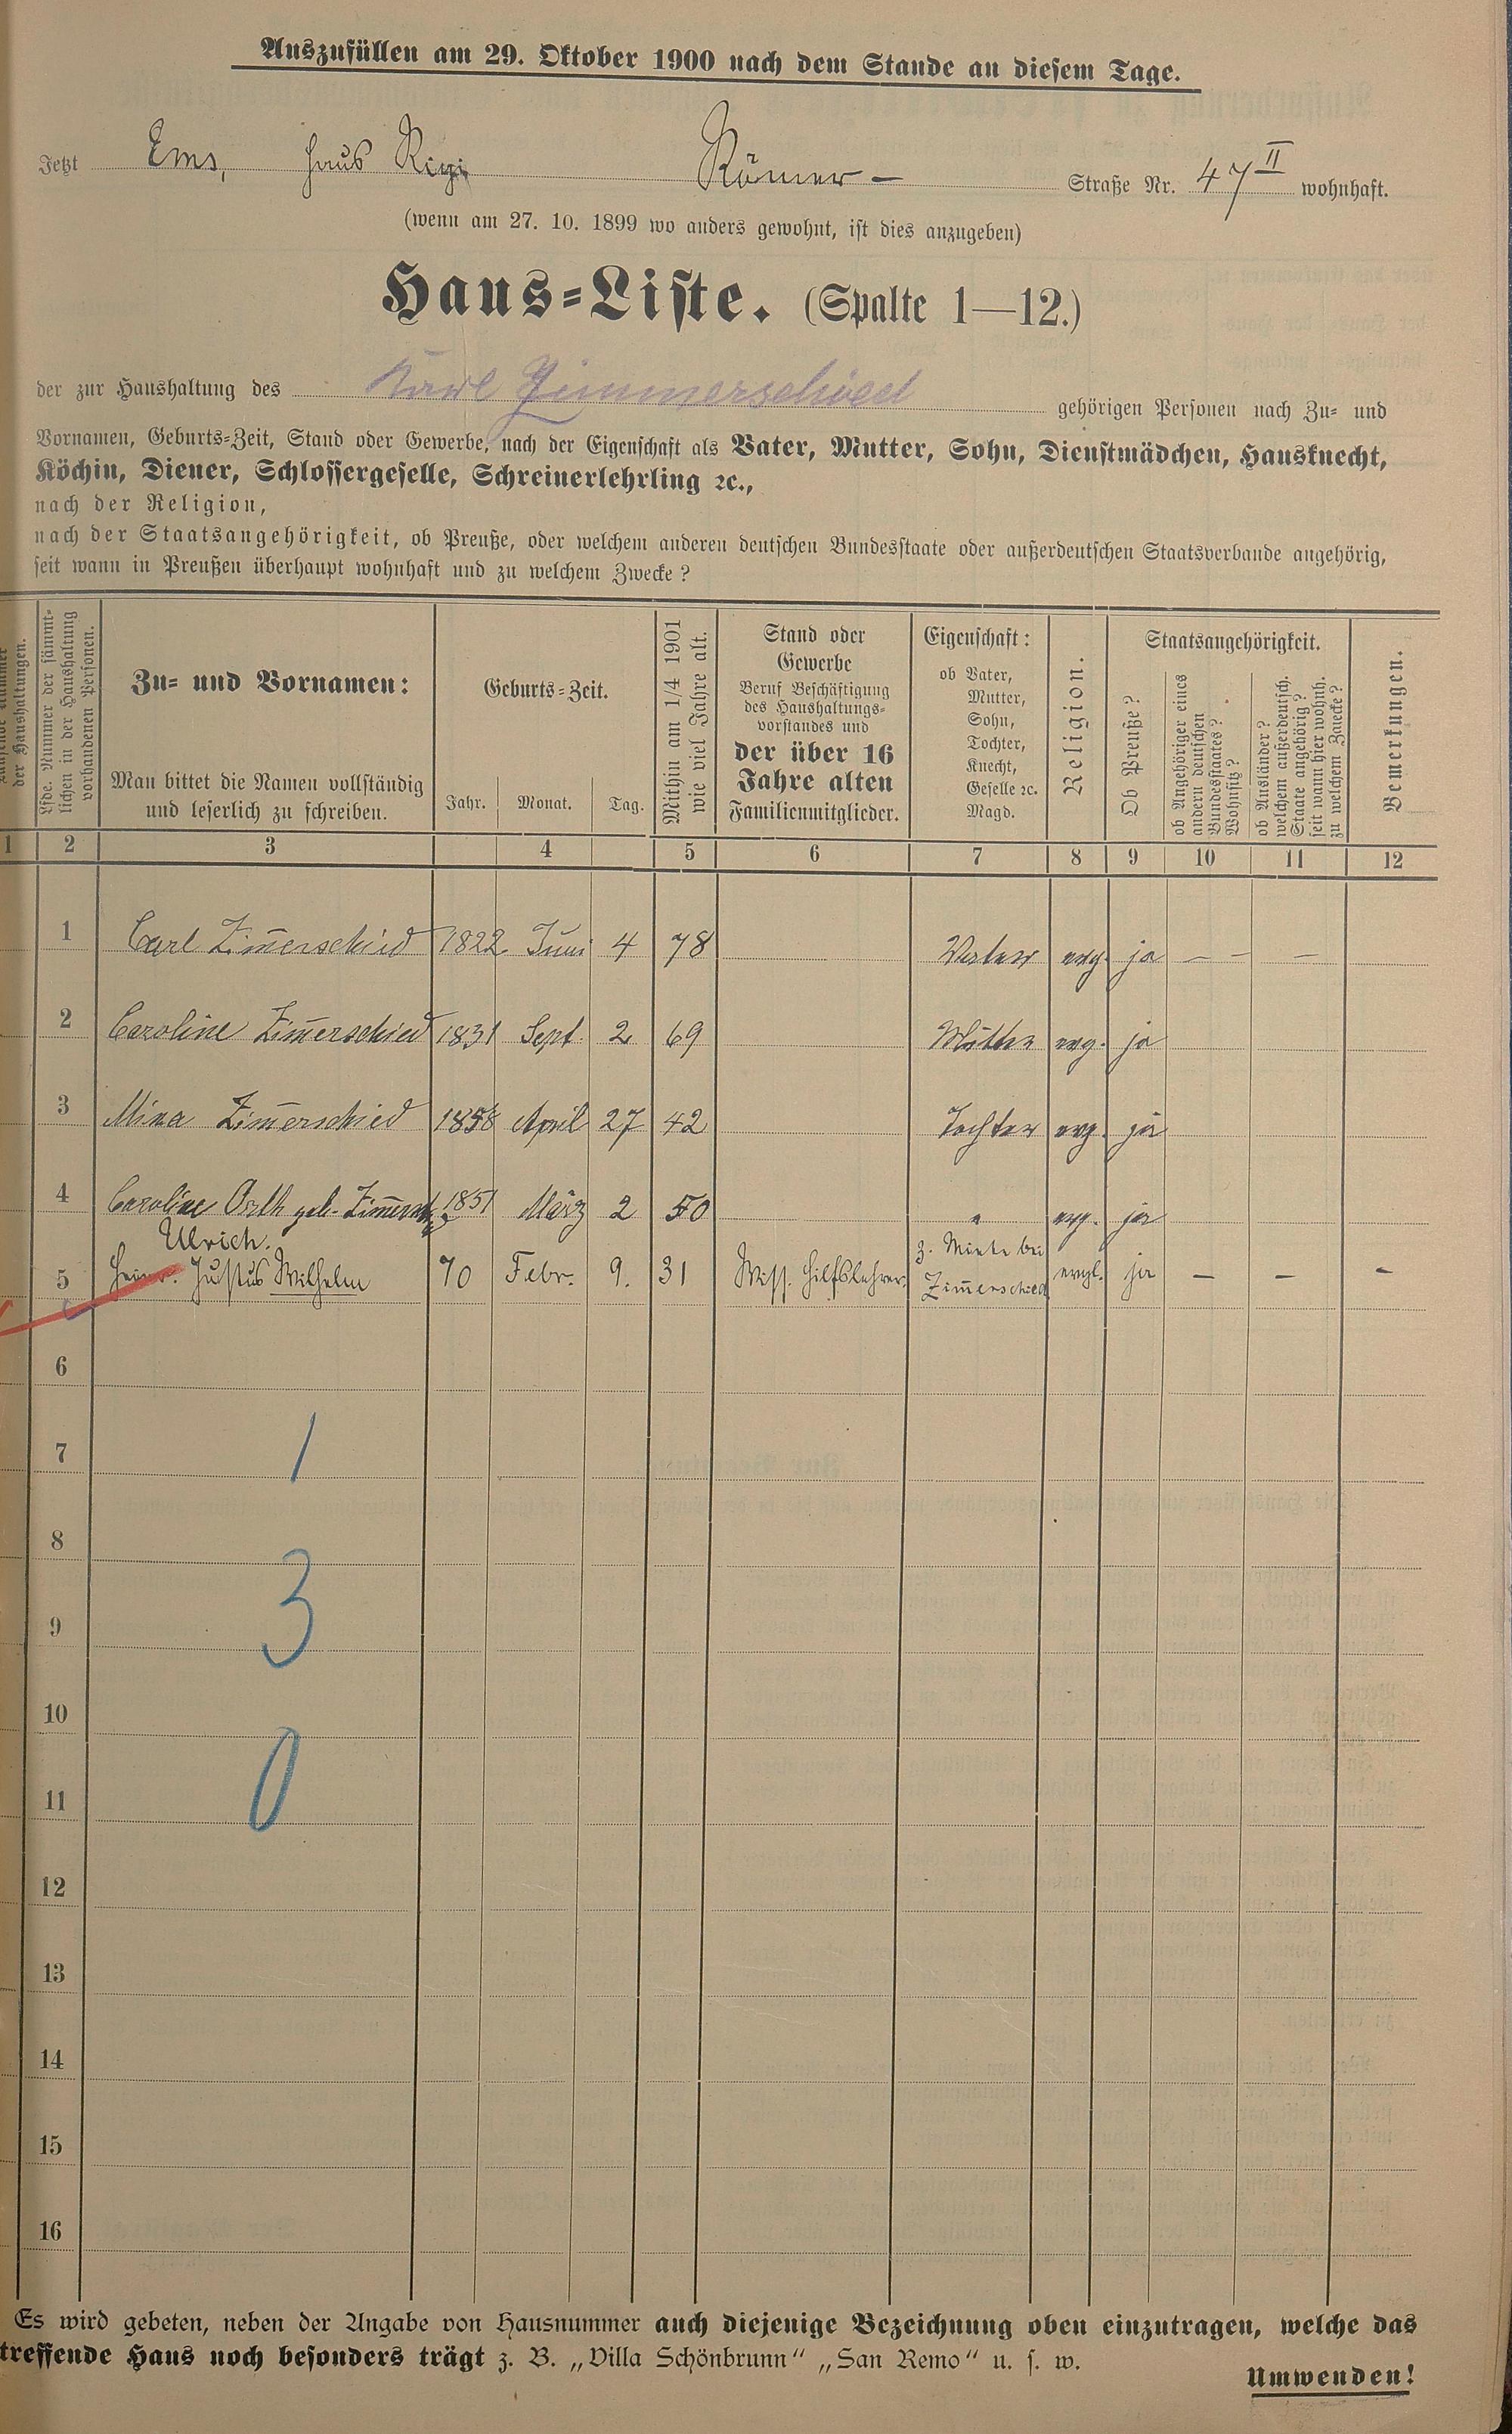 Auszufüllen am 29. Oktober 1900 nach dem Stande an diesem Tage.
Jetzt Ems, Haus Rigi Römer- Straße Nr. 47 II wohnhaft.
(wenn am 27. 10. 1899 wo anders gewohnt, ist dies anzugeben)
Haus-Liste. (Spalte 1—12.)
der zur Haushaltung des Karl Zimmerschied gehörigen Personen nach Zu- und
Vornamen, Geburts-Zeit, Stand oder Gewerbe, nach der Eigenschaft als Vater, Mutter, Sohn, Dienstmädchen, Hausknecht,
Köchin, Diener, Schlossergeselle, Schreinerlehrling ꝛc.,
nach der Religion,
nach der Staatsangehörigkeit, ob Preuße, oder welchem anderen deutschen Bundesstaate oder außerdeutschen Staatsverbande angehörig,
seit wann in Preußen überhaupt wohnhaft und zu welchem Zwecke?
der Haushaltungen.
Lfde. Nummer der sämmt-
lichen in der Haushaltung
vorhandenen Personen.
Zu- und Vornamen:
Man bittet die Namen vollständig
und leserlich zu schreiben.
Geburts-Zeit.
Jahr. Monat. Tag.
Mithin am 1/4 1901
wie viel Jahre alt.
Stand oder
Gewerbe
Beruf Beschäftigung
des Haushaltungs-
vorstandes und
der über 16
Jahre alten
Familienmitglieder.
Eigenschaft:
ob Vater,
Mutter,
Sohn,
Tochter,
Knecht,
Geselle ꝛc.
Magd.
Religion.
Staatsangehörigkeit.
Ob Preuße?
ob Angehöriger eines
andern deutschen
Bundesstaates?
Wohnsitz?
ob Ausländer?
welchem außerdeutsch.
Staate angehörig?
seit wann hier wohnh.
zu welchem Zwecke?
Bemerkungen.
1 2 3 4 5 6 7 8 9 10 11 12
1 Carl Zim̅erschied 1822 Juni 4 78 Vater evg. ja — — —
2 Caroline Zim̅erschied 1831 Sept. 2 69 Mutter evg. ja
3 Mina Zim̅erschied 1858 April 27 42 Tochter evg. ja
4 Caroline Orth geb. Zim̅ersch 1851 März 2 50 " evg. ja
Ulrich.
5 Heinr. Justus Wilhelm 70 Febr. 9. 31 Wiss. Hilfslehrer. z. Miete bei Zim̅erschied evgl. ja — — —
6
7
1
8
3
9
10
0
11
12
13
14
15
16
Es wird gebeten, neben der Angabe von Hausnummer auch diejenige Bezeichnung oben einzutragen, welche das
treffende Haus noch besonders trägt z. B. „Villa Schönbrunn“ „San Remo“ u. s. w.
Umwenden!